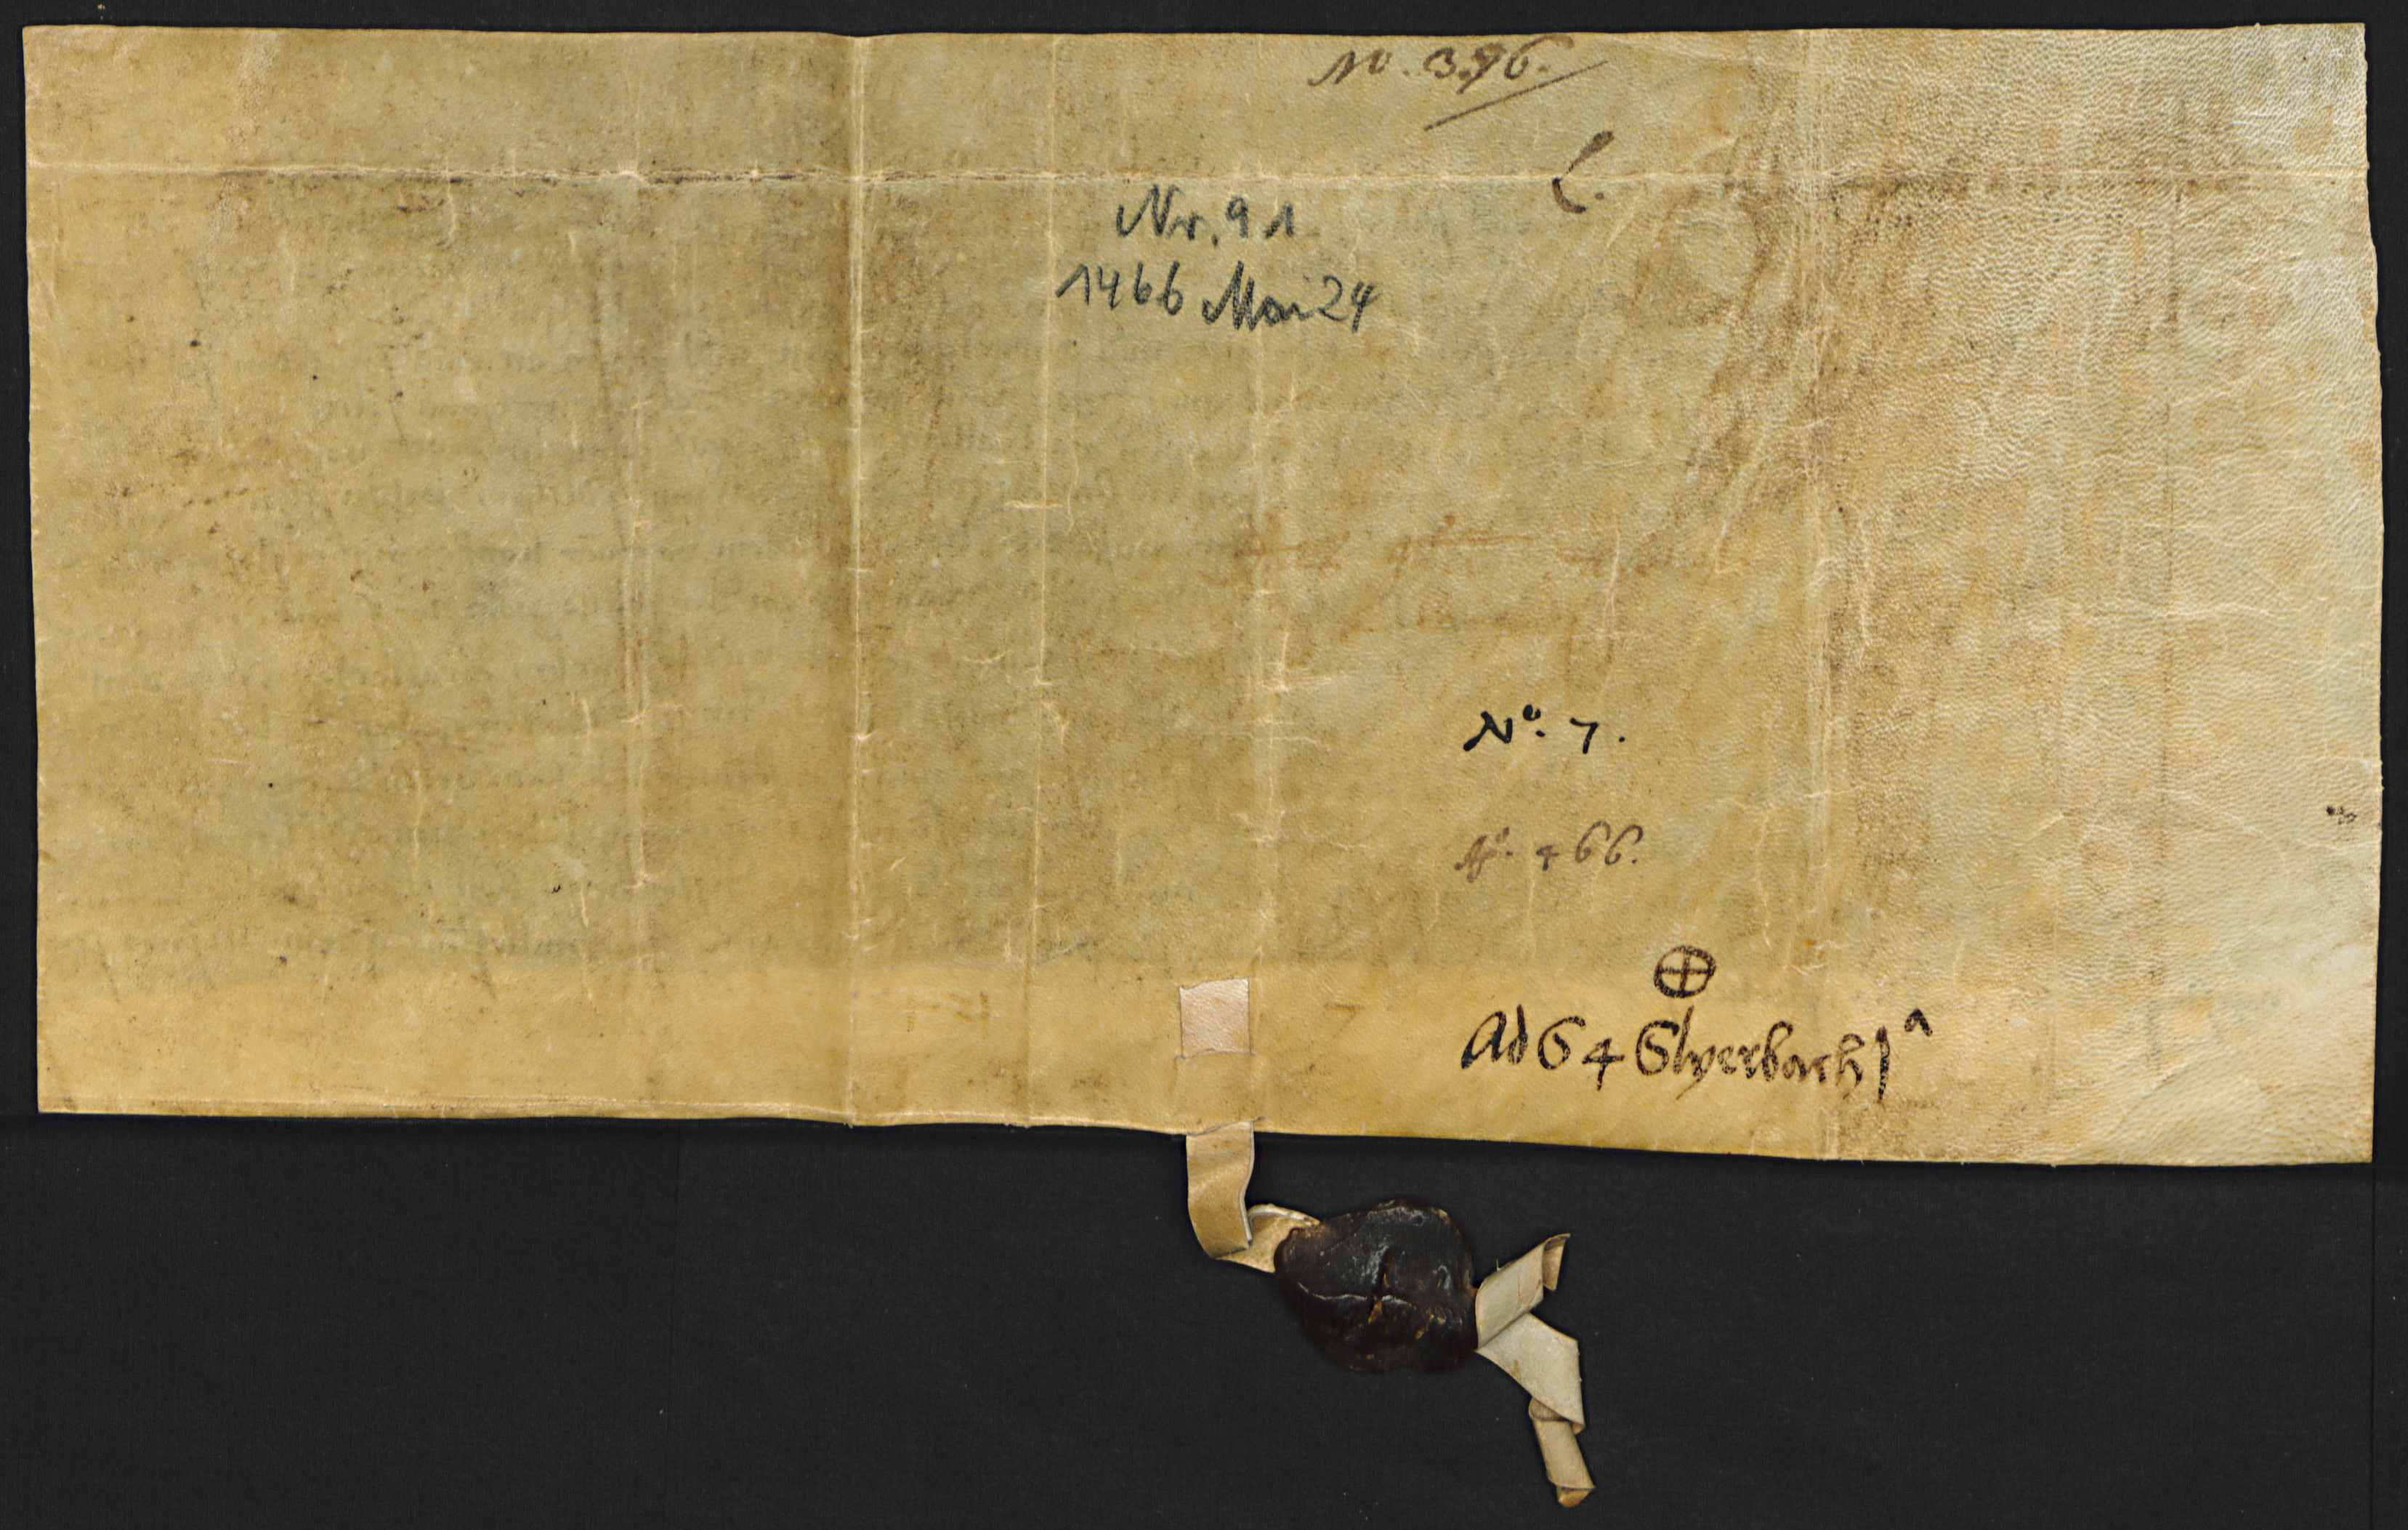 No. 396.
L.
Nr. 91
1466 Mai 24
No. 7.
Ao. 466.
Ad 64 Elyerbach 1ᵃ